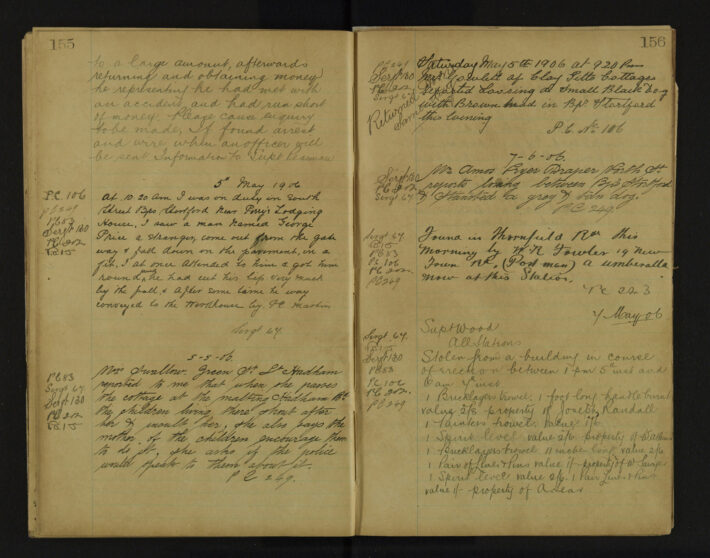 155
to a large amount, afterwards
returning and obtaining money
he representing he had met with
an accident and had run short
of money. Please cause enquiry
to be made, If found arrest
and wire when an officer will
be sent Information to Supt
5th May 1906
PC 106
PC 249
PC 83
Sergt 130
PC 202
At 10.20 am I was on duty in South
Street Bps Stortford Near Perry's Lodging
House, I saw a man named George
Price a stranger, come out from the gate
way & fall down on the pavement, in a
fit. I at once attended to him & got him
round, he had cut his lip very much
by the fall & after some time he was
conveyed to the Workhouse by PC Martin
Sergt 64
5-5-06.
PC 83
Sergt 64
Sergt 130
PC 202
Mrs Swallow. Green St Lt Hadham
reported to me that when she passes
the cottage at the malting Hadham Rd
the children living there shout after
her & insults her, she also says the
mother of the children encourage them
to do it, she asks if the police
would speak to them about it.
PC 249.
156
PC 249
Sergt 130
PC 202
Sergt 64
Returned
Same
Saturday May 5th 1906 at 9.20 Pm
Mrs Gowlett of Clay Pitts Cottages
reported Loosing a Small Black Dog
with Brown head in Bps Stortford
this Evening
P.C. No 106
7-5-06.
Sergt 130
PC 202
Sergt 64
Mr Amos Draper North St
reports losing between Bps Stortford
& Stansted a gray & tan dog.
PC 249
Sergt 64
PC 83
PC 106
PC 202
PC 249
Found in Thornfield Rd this
Morning by Mr R Fowler 19 New
Town Rd, (Post man) a umberella
now at this Station.
PC 223
7 May 06
Sergt 64.
Sergt 130
PC 83
PC 106
PC 202.
PC 249
Supt Wood
All Stations
Stolen from a building in course
of erection between 1 pm 5th inst and
6 am 7 inst
1 Bricklayers trowel, 1 foot long handle burnt
value 3/6 property of Joseph Randall
1 Painters trowel value 1/6
1 Spirit level value 2/6 property of
1 Bricklayers trowel 11 inche long value 2/6
1 Pair of Lines & Pins value 1/- property of W
1 Spirit level value 2/6. 1 Pair Lines & Pins
value 1/- property of A Lea